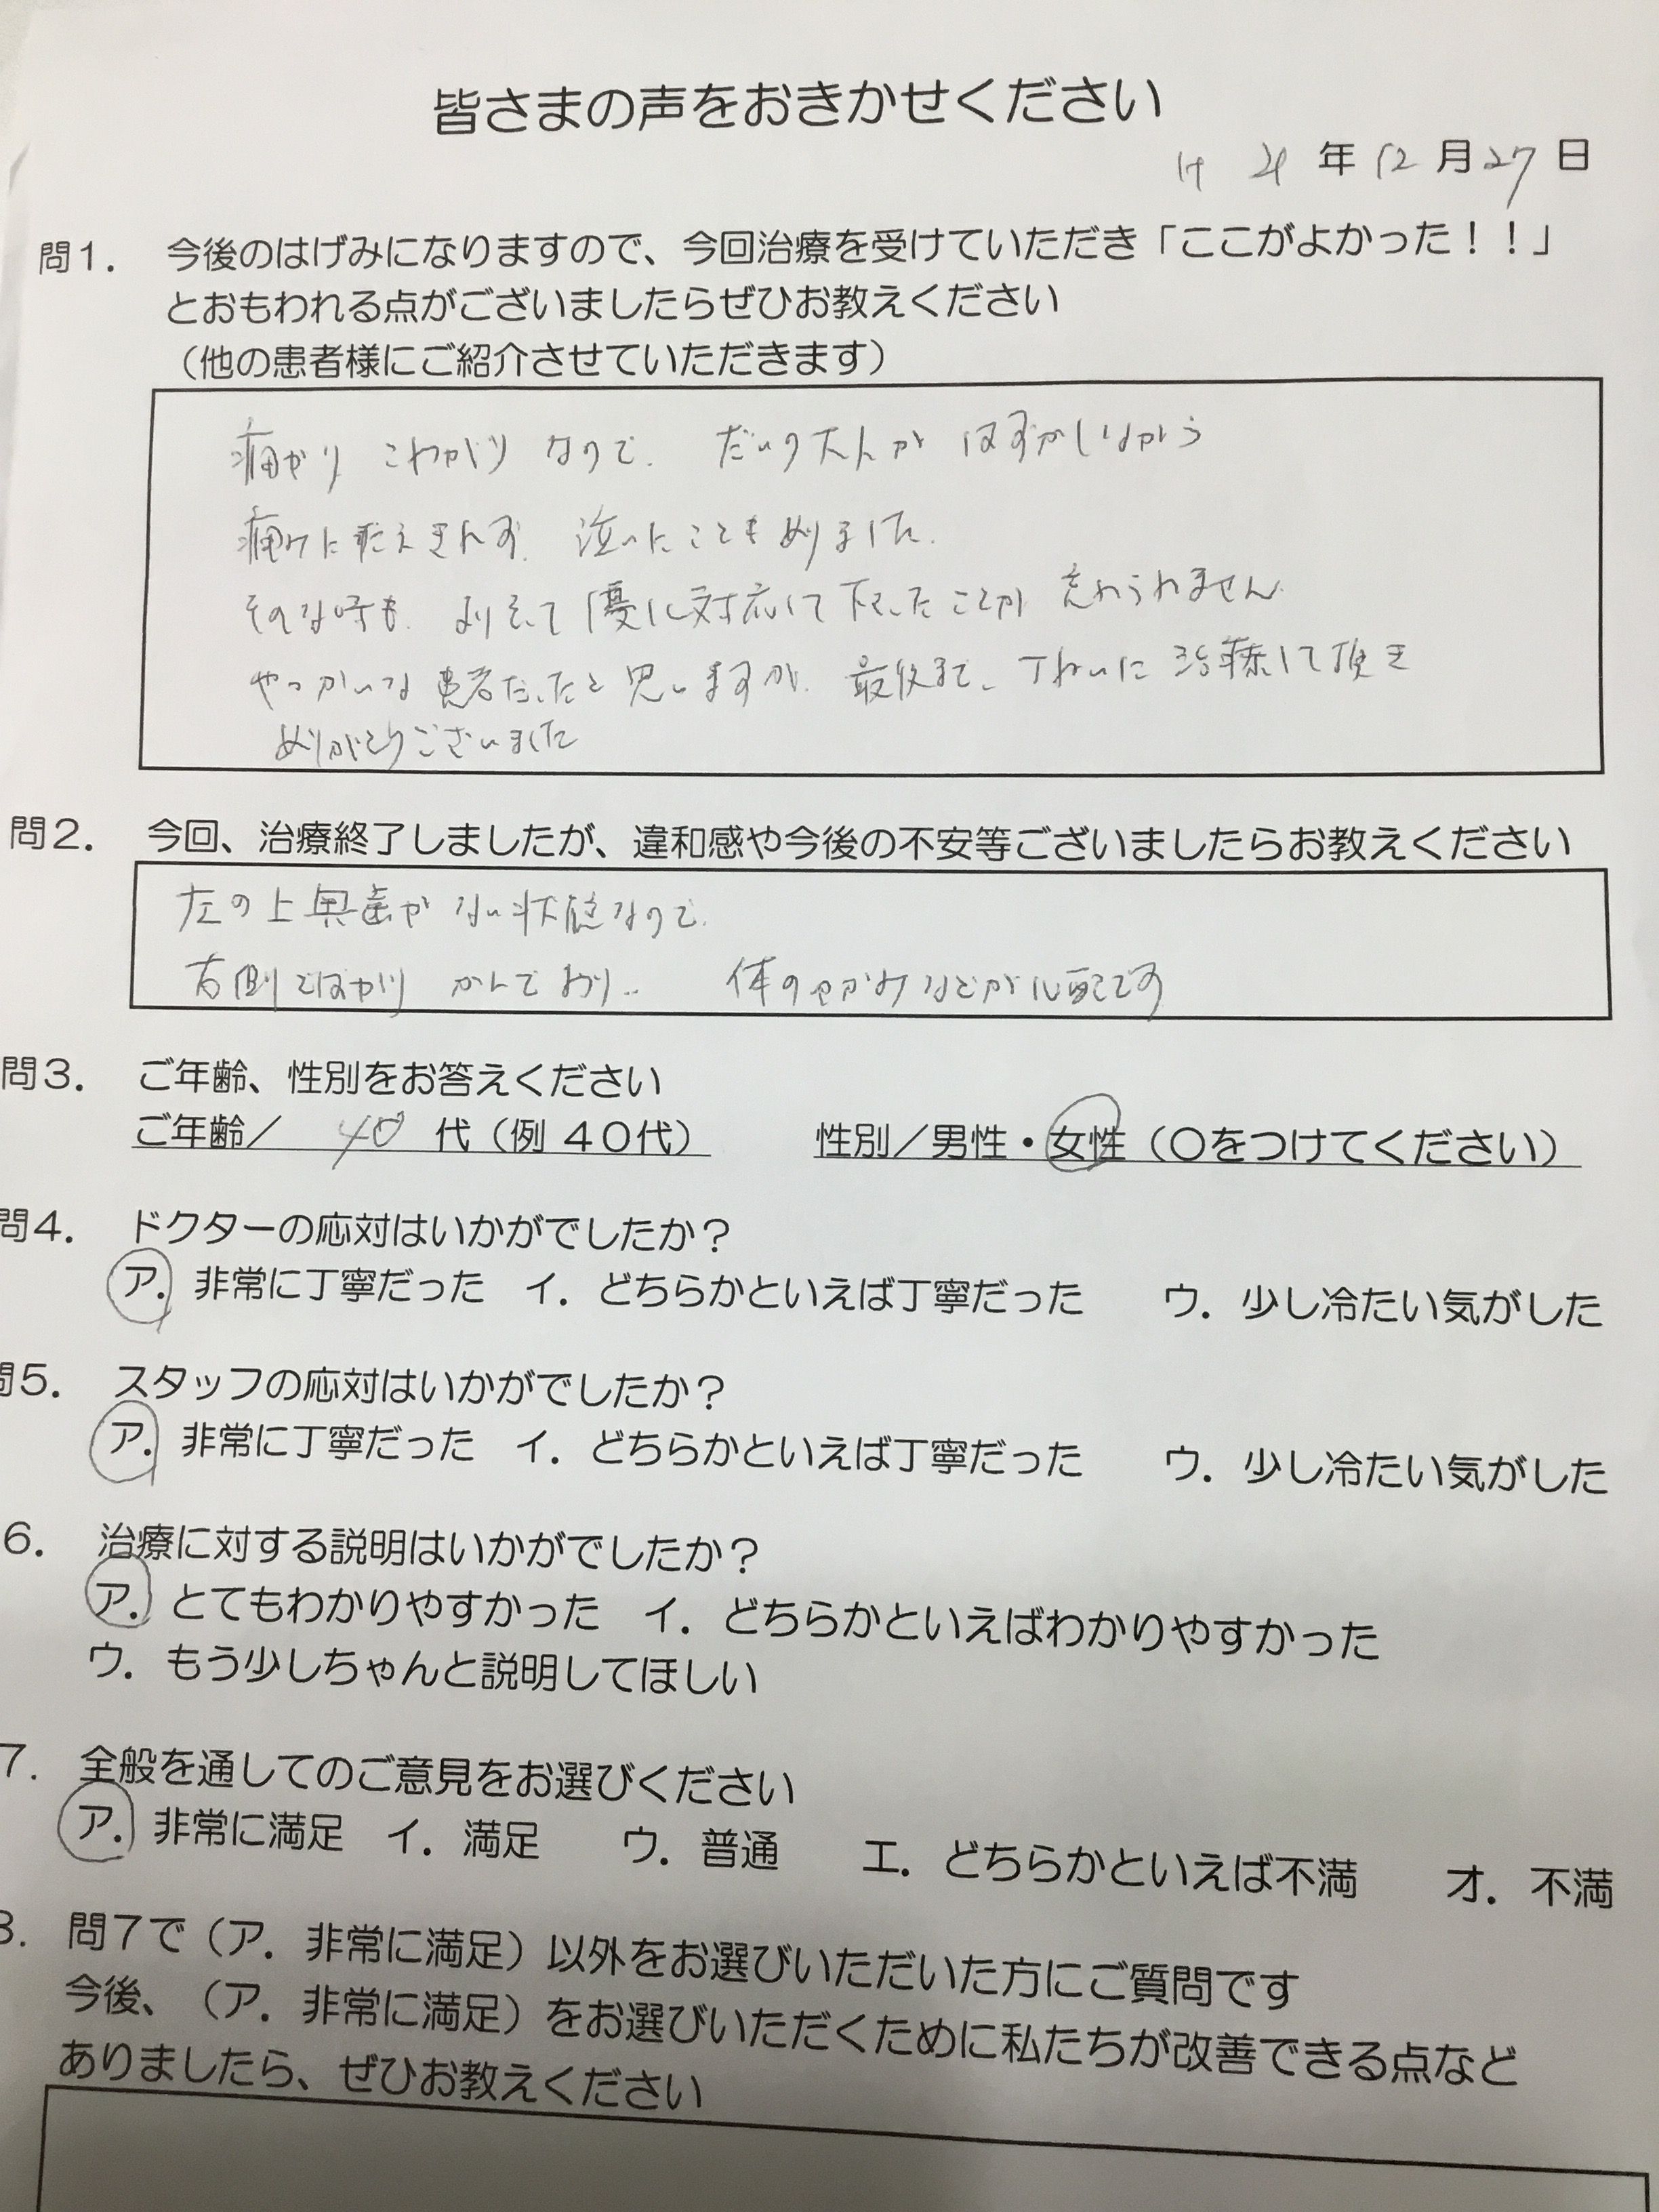 皆さまの声をおきかせください
H 年12月27日
問1. 今後のはげみになりますので、今回治療を受けていただき「ここがよかった！！」
とおもわれる点がございましたらぜひお教えください
（他の患者様にご紹介させていただきます）
痛がり こわがり なので、 だいの大人が はずかしながら
痛みに耐えきれず、泣いたこともありました。
そんな時も、よりそって 優しく対応して下さったことが 忘れられません
やっかいな 患者だったと思いますが、最後まで、丁ねいに 治療して頂き
ありがとうございました
問2. 今回、治療終了しましたが、違和感や今後の不安等ございましたらお教えください
左の上奥歯が ない状態なので、
右側でばかり かんでおり.. 体のゆがみなどが心配です
問3. ご年齢、性別をお答えください
ご年齢／ 40 代（例 40代） 性別／男性・女性（○をつけてください）
問4. ドクターの応対はいかがでしたか？
ア. 非常に丁寧だった イ. どちらかといえば丁寧だった ウ. 少し冷たい気がした
問5. スタッフの応対はいかがでしたか？
ア. 非常に丁寧だった イ. どちらかといえば丁寧だった ウ. 少し冷たい気がした
6. 治療に対する説明はいかがでしたか？
ア. とてもわかりやすかった イ. どちらかといえばわかりやすかった
ウ. もう少しちゃんと説明してほしい
7. 全般を通してのご意見をお選びください
ア. 非常に満足 イ. 満足 ウ. 普通 エ. どちらかといえば不満 オ. 不満
8. 問7で（ア. 非常に満足）以外をお選びいただいた方にご質問です
今後、（ア. 非常に満足）をお選びいただくために私たちが改善できる点など
ありましたら、ぜひお教えください